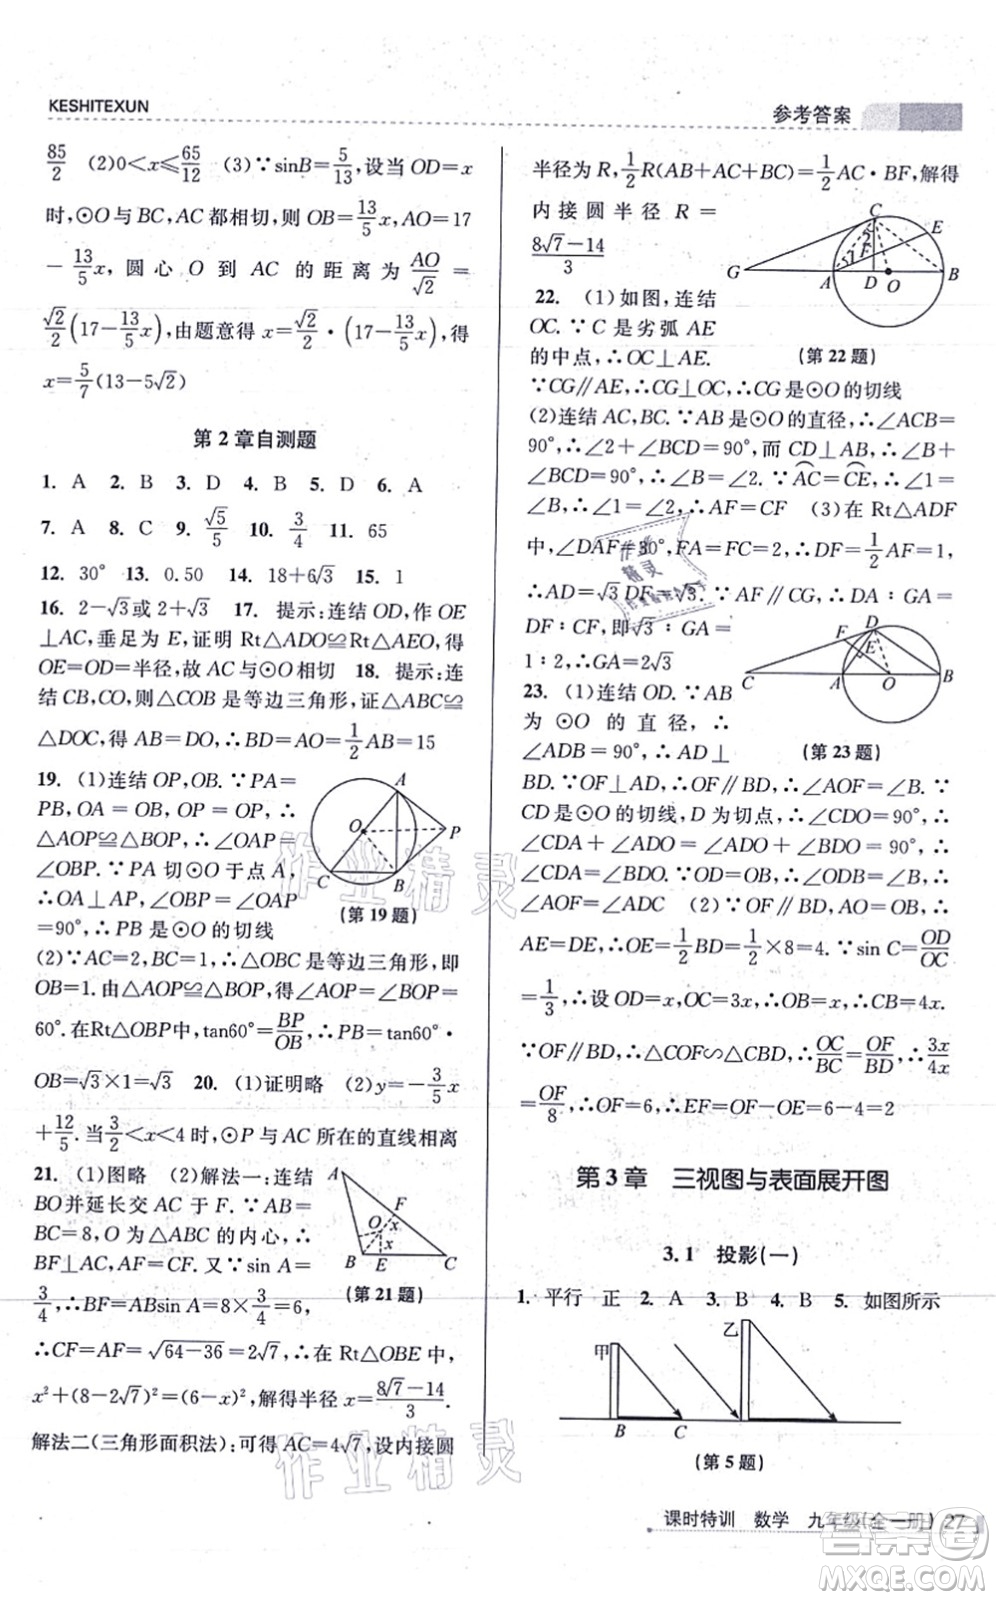 KESHITEXUN
参考答案
85/2 (2)0＜x≤65/12 (3)∵sinB=5/13,设当 OD=x
时,⊙O与BC,AC都相切,则 OB=13/5x,AO=17
－13/5x,圆心 O 到 AC 的距离为 AO/√2 =
√2/2(17－13/5x),由题意得 x=√2/2·(17－13/5x),得
x=5/7(13－5√2)
第2章自测题
1. A 2. B 3. D 4. B 5. D 6. A
7. A 8. C 9. √5/5 10. 3/4 11. 65
12. 30° 13. 0.50 14. 18+6√3 15. 1
16. 2－√3或2+√3 17. 提示:连结OD,作OE
⊥AC,垂足为E,证明 Rt△ADO≌Rt△AEO,得
OE=OD=半径,故AC与⊙O相切 18. 提示:连
结CO,则△COB是等边三角形,证△ABC≌
△DOC,得 AB=DO,∴BD=AO=1/2AB=15
19. (1)连结OP,OB.∵PA=
PB,OA=OB,OP=OP,∴
△AOP≌△BOP,∴∠OAP=
∠OBP.∵PA切⊙O于点A,
∴OA⊥AP,∴∠OBP=∠OAP
=90°,∴PB是⊙O的切线
A
O
P
C
B
(第19题)
(2)∵AC=2,BC=1,∴△OBC是等边三角形,即
OB=1.由△AOP≌△BOP,得∠AOP=∠BOP=
60°.在Rt△OBP中,tan60°=BP/OB,∴PB=tan60°·
OB=√3×1=√3 20. (1)证明略 (2)y=－3/5x
+12/5.当3/2＜x＜4时,⊙P与AC所在的直线相离
21. (1)图略 (2)解法一:连结
BO并延长交AC于F.∵AB=
BC=8,O为△ABC的内心,∴
BF⊥AC,AF=CF.∵sin A=
3/4,∴BF=ABsin A=8×3/4=6,
A
F
O
x
x
B
E
C
(第21题)
∴CF=AF=√64－36=2√7,∴在Rt△OBE中,
x²+(8－2√7)²=(6－x)²,解得半径x=8√7－14/3
解法二(三角形面积法):可得AC=4√7,设内接圆
半径为R,1/2R(AB+AC+BC)=1/2AC·BF,解得
内接圆半径 R =
8√7－14/3
C
E
F
G
A
D
O
B
(第22题)
22. (1)如图,连结
OC.∵C是劣弧AE
的中点,∴OC⊥AE.
∵CG∥AE,∴CG⊥OC,∴CG是⊙O的切线
(2)连结AC,BC.∵AB是⊙O的直径,∴∠ACB=
90°,∴∠2+∠BCD=90°,而CD⊥AB,∴∠B+
∠BCD=90°,∴∠B=∠2.∵AC=CE,∴∠1=
∠B,∴∠1=∠2,∴AF=CF (3)在Rt△ADF
中,∠DAF=30°,FA=FC=2,∴DF=1/2AF=1,
∴AD=√3DF=√3.∵AF∥CG,∴DA:GA=
DF:CF,即√3:GA=
1:2,∴GA=2√3
F
D
E
C
A
O
B
(第23题)
23. (1)连结OD.∵AB
为⊙O的直径,∴
∠ADB=90°,∴AD⊥
BD.∵OF⊥AD,∴OF∥BD,∴∠AOF=∠B.∵
CD是⊙O的切线,D为切点,∴∠CDO=90°,∴
∠CDA+∠ADO=∠ADO+∠BDO=90°,∴
∠CDA=∠BDO.∵OD=OB,∴∠ODB=∠B,∴
∠AOF=∠ADC (2)∵OF∥BD,AO=OB,∴
AE=DE,∴OE=1/2BD=1/2×8=4.∵sin C=OD/OC
=1/3,∴设OD=x,OC=3x,∴OB=x,∴CB=4x.
∵OF∥BD,∴△COF∽△CBD,∴OC/BC=OF/BD,∴3x/4x
=OF/8,∴OF=6,∴EF=OF－OE=6－4=2
第3章 三视图与表面展开图
3.1 投影(一)
1. 平行 正 2. A 3. B 4. B 5. 如图所示
甲
乙
B
C
(第5题)
课时特训 数学 九年级(全一册) 27
作业精灵
作业精灵
答案圈
MXQE.COM